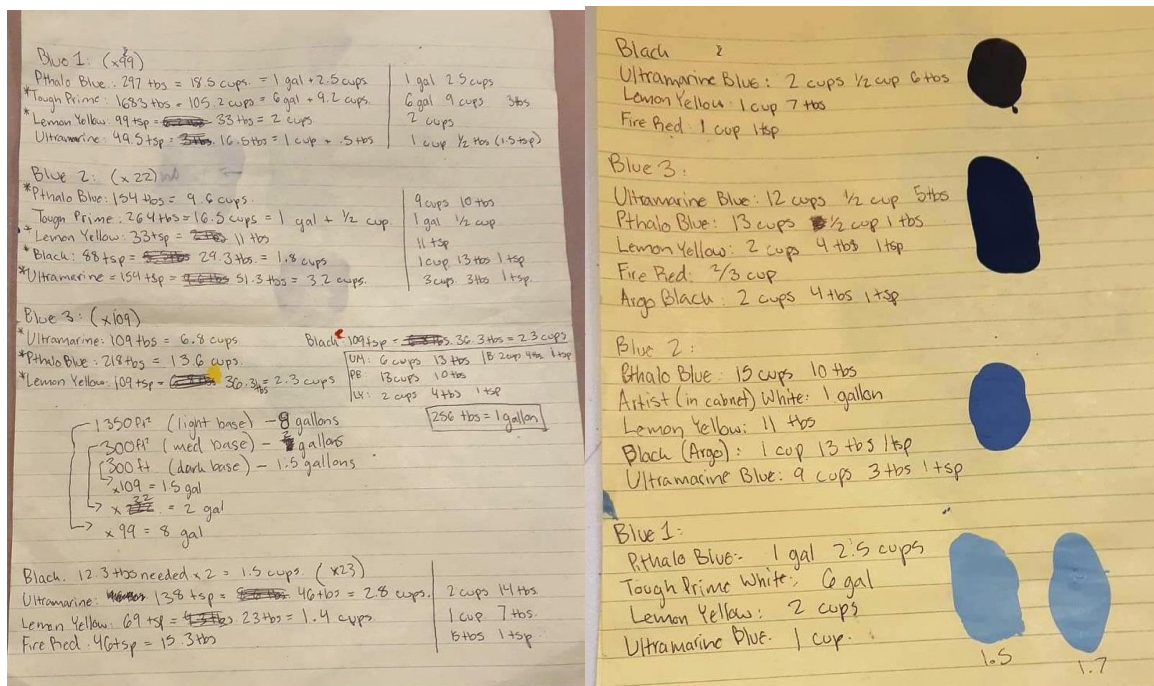 Blue 1: (x99)
Pthalo Blue: 297 tbs = 18.5 cups. = 1 gal + 2.5 cups
1 gal 2.5 cups
*Tough Prime: 1683 tbs = 105.2 cups = 6 gal + 9.2 cups.
6 gal 9 cups 3tbs
*Lemon Yellow: 99 tsp = 33 tbs = 2 cups
2 cups
Ultramarine: 49.5 tsp = 16.5 tbs = 1 cup + .5 tbs
1 cup 1/2 tbs (1.5 tsp)
Blue 2: (x 22)
*Pthalo Blue: 154 tbs = 9.6 cups.
9 cups 10 tbs
Tough Prime: 264 tbs = 16.5 cups = 1 gal + 1/2 cup
1 gal 1/2 cup
*Lemon Yellow: 33 tsp = 11 tbs
11 tsp
*Black: 88 tsp = 29.3 tbs = 1.8 cups
1 cup 13 tbs 1 tsp
*Ultramerine = 154 tsp = 51.3 tbs = 3.2 cups.
3 cups 3tbs 1 tsp.
Blue 3: (x109)
*Ultramarine: 109 tbs = 6.8 cups
Black 109 tsp = 36.3 tbs = 2.3 cups
*Pthalo Blue: 218 tbs = 13.6 cups.
UM: 6 cups 13 tbs B 2cup 4tbs 1 tsp
PB: 13 cups 10 tbs
*Lemon Yellow: 109 tsp = 36.3 tbs = 2.3 cups
LY: 2 cups 4 tbs 1 tsp
256 tbs = 1 gallon
1350 ft² (light base) - 8 gallons
300 ft² (med base) - 2 gallons
300 ft (dark base) - 1.5 gallons
x109 = 1.5 gal
x 22 = 2 gal
x 99 = 8 gal
Black. 12.3 tbs needed x 2 = 1.5 cups. (x23)
Ultramarine: 138 tsp = 46 tbs = 2.8 cups.
2 cups 14 tbs.
Lemon Yellow: 69 tsp = 23 tbs = 1.4 cups
1 cup 7 tbs.
Fire Red. 46 tsp = 15.3 tbs
15 tbs 1 tsp.
Black
Ultramarine Blue: 2 cups 1/2 cup 6 tbs
Lemon Yellow: 1 cup 7 tbs
Fire Red: 1 cup 1tsp
Blue 3:
Ultramarine Blue: 12 cups 1/2 cup 5 tbs
Pthalo Blue: 13 cups 1/2 cup 1 tbs
Lemon Yellow: 2 cups 4 tbs 1 tsp
Fire Red: 2/3 cup
Argo Black: 2 cups 4 tbs 1 tsp
Blue 2:
Pthalo Blue: 15 cups 10 tbs
Artist (in cabnet) White: 1 gallon
Lemon Yellow: 11 tbs
Black (Argo): 1 cup 13 tbs 1tsp
Ultramarine Blue: 9 cups 3 tbs 1 tsp
Blue 1:
Pthalo Blue: 1 gal 2.5 cups
Tough Prime White: 6 gal
Lemon Yellow: 2 cups
Ultramarine Blue. 1 cup.
1.5
1.7